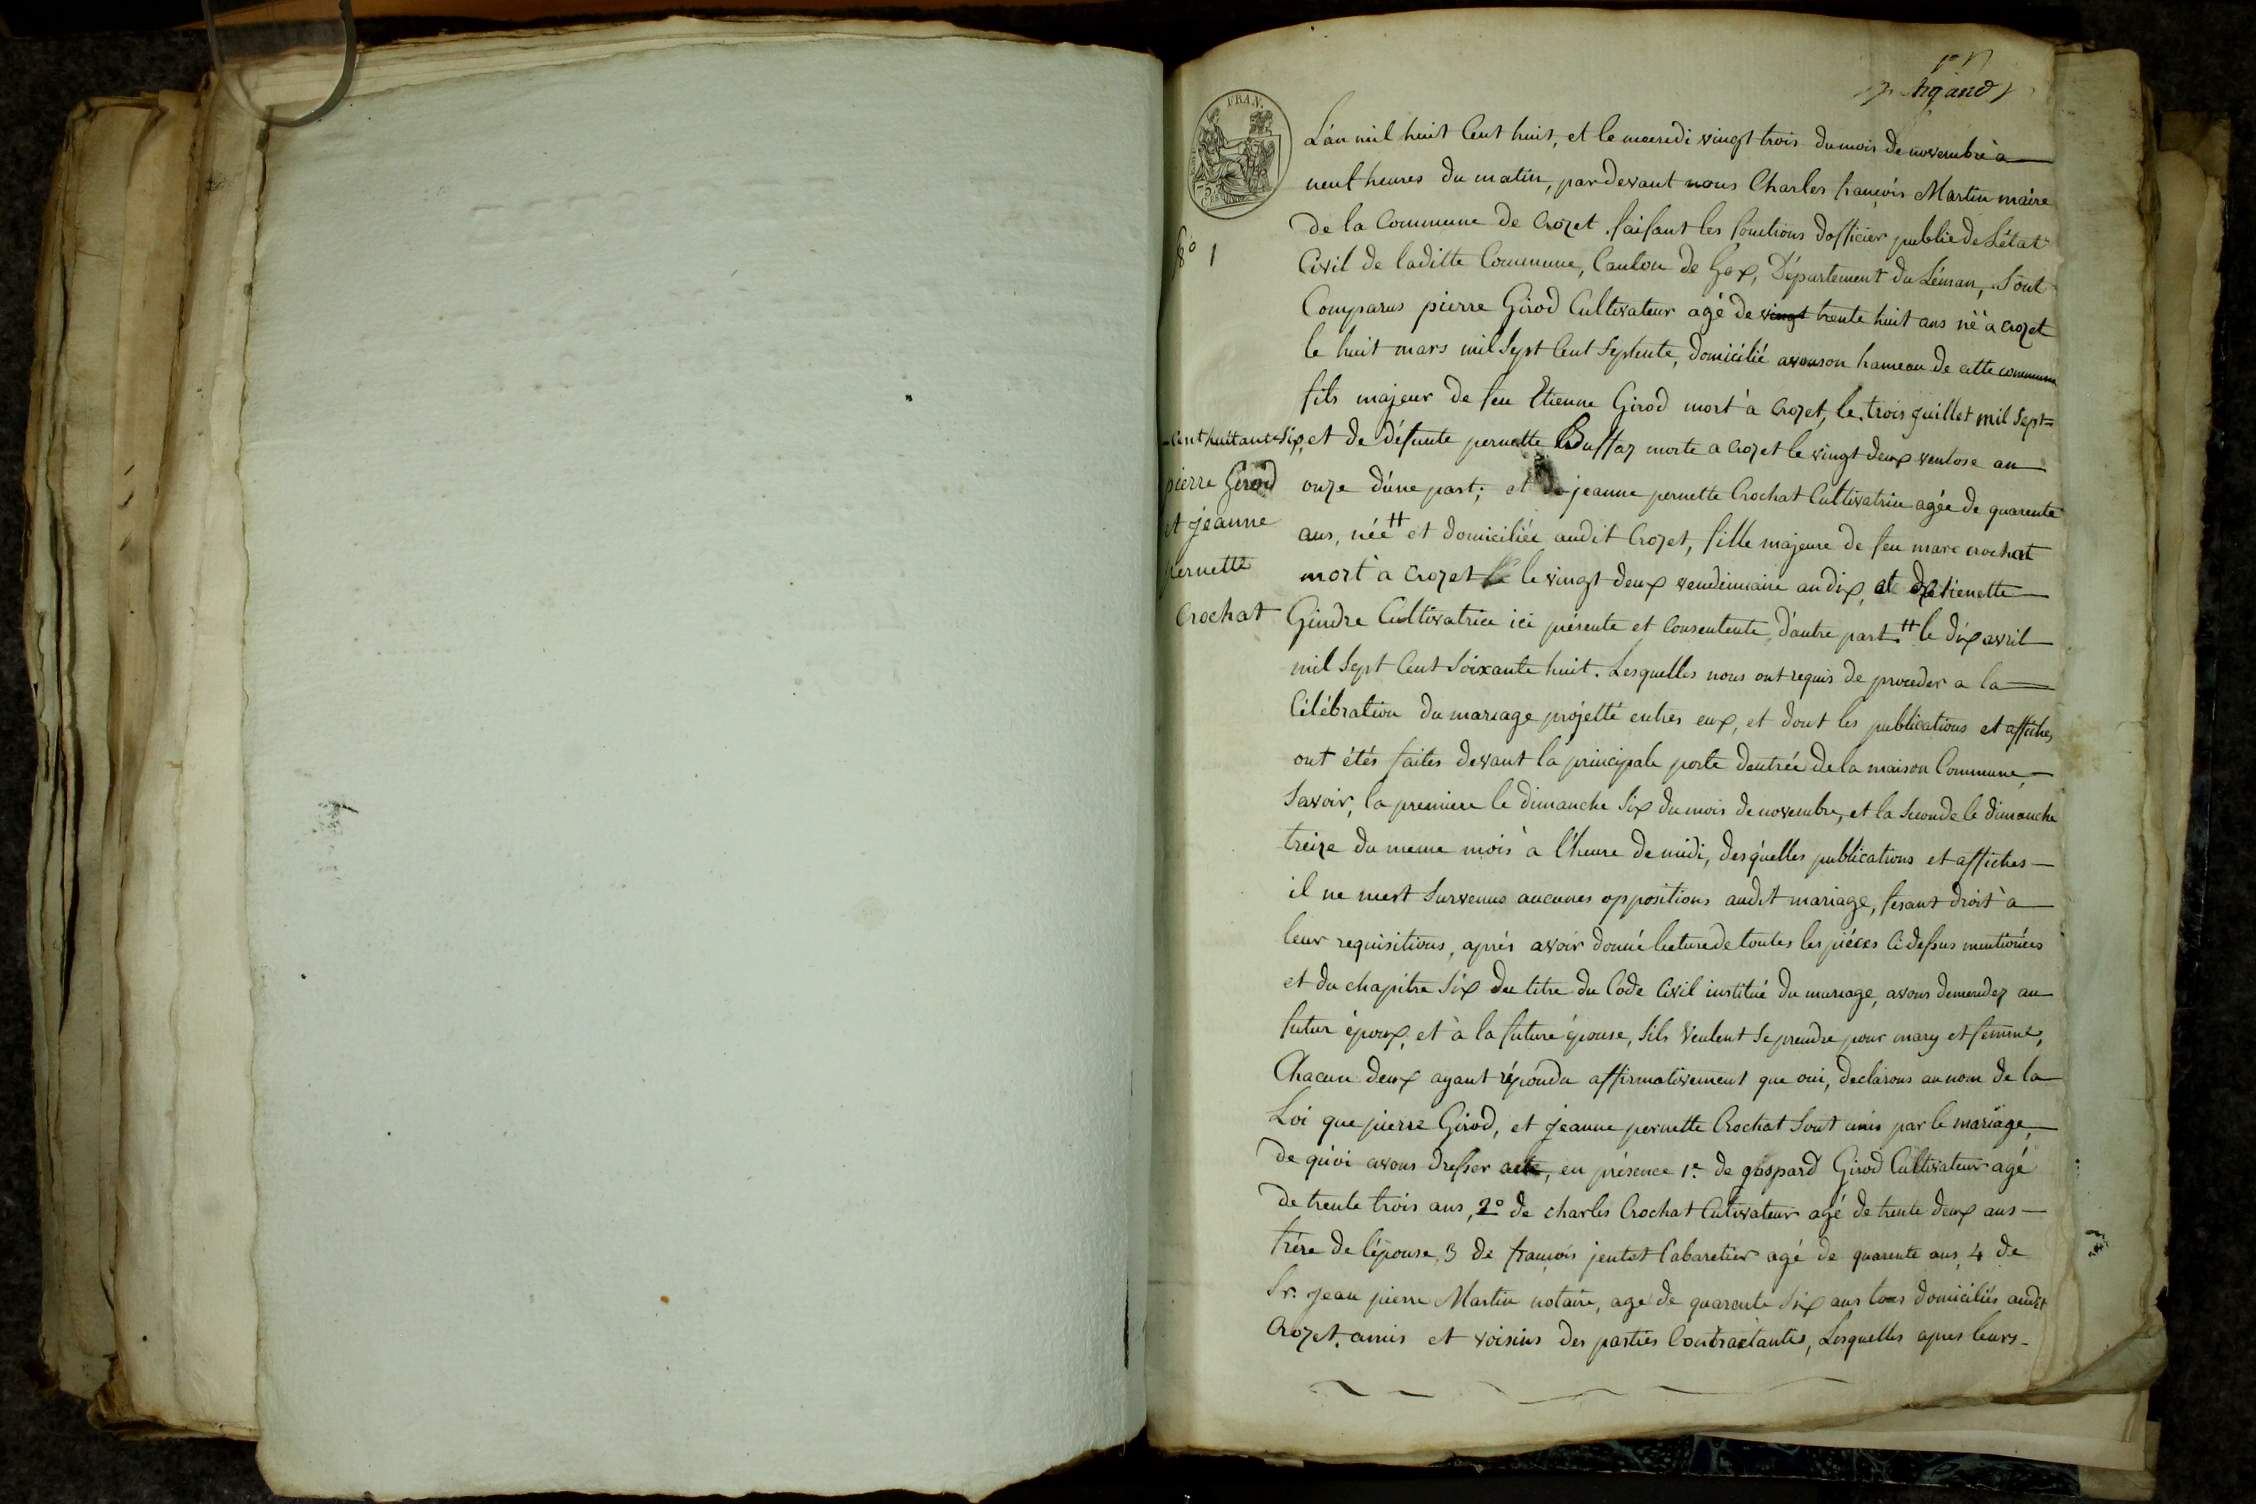 FRAN.
L'an mil huit Cent huit, et le mercredi vingt trois du mois de novembre à
neuf heures du matin, par devant nous Charles françois Martin maire
de la Commune de Crozet faisant les fonctions d'officier public de L'état
Civil de laditte Commune, Canton de Gex, Département du Léman, Sont
N° 1
Comparus pierre Girod Cultivateur agé de vingt trente huit ans né à crozet
le huit mars mil Sept Cent Septente, domicilié avouson hameau de cette commune
fils majeur de feu Etienne Girod mort à Crozet, le trois juillet mil Sept=
-cent huitante six, et de défunte pernette Buffaz morte a crozet le vingt deux ventose an
onze d'une part; et jeanne pernette Crochat Cultivatrice agée de quarente
ans, née # et domiciliée audit Crozet, fille majeure de feu marc crochat
mort à Crozet le vingt deux vendémiaire an dix, et d'Etienette
Gindre Cultivatrice ici présente et Consentente, d'autre part. # le dix avril
mil Sept Cent Soixante huit. Lesquelles nous ont requis de proceder a la
Célébration du mariage projetté entres eux, et dont les publications et affiches
ont étés faites devant la principale porte dentrée de la maison Commune,
Savoir, la premiere le dimanche Six du mois de novembre, et la Seconde le dimanche
treize du meme mois à l'heure de midi, desquelles publications et affiches
il ne nest Survenus aucunes oppositions audit mariage, fesant droit à
leur requisitions, aprés avoir donné lecture de toutes les piéces Ci dessus mentionées
et du chapitre Six du titre du Code Civil institué du mariage, avons demendez au
futur époux, et à la future épouse, S'ils Veulent Se prendre pour mary et femme,
Chacun deux ayant répondu affirmativement que oui, declarons au nom de la
Loi que pierre Girod, et jeanne pernette Crochat Sont unis par le mariage,
de quoi avons dresser acte, en présence 1°. de gaspard Girod Cultivateur agé
de trente trois ans, 2° de charles Crochat Cutivateur agé de trente deux ans
frére de l'épouse, 3 de françois jentet Cabaretier agé de quarente ans, 4 de
Sr. jean pierre Martin notaire, agé de quarente Six ans tous domiciliés audit
Crozet, amis et voisins des parties Contractantes, Lesquelles apres leurs-
pierre Girod
et jeanne
pernette
Crochat